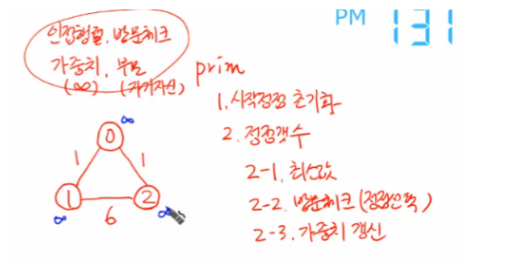 PM 1:31
인접행렬, 방문체크
가중치, 부모
(∞) (자기자신)
prim
1. 시작정점 초기화
2. 정점갯수
2-1. 최소값
2-2. 방문체크 (정점선택)
2-3. 가중치 갱신
∞
0
1 1
1 2
∞ 6 ∞